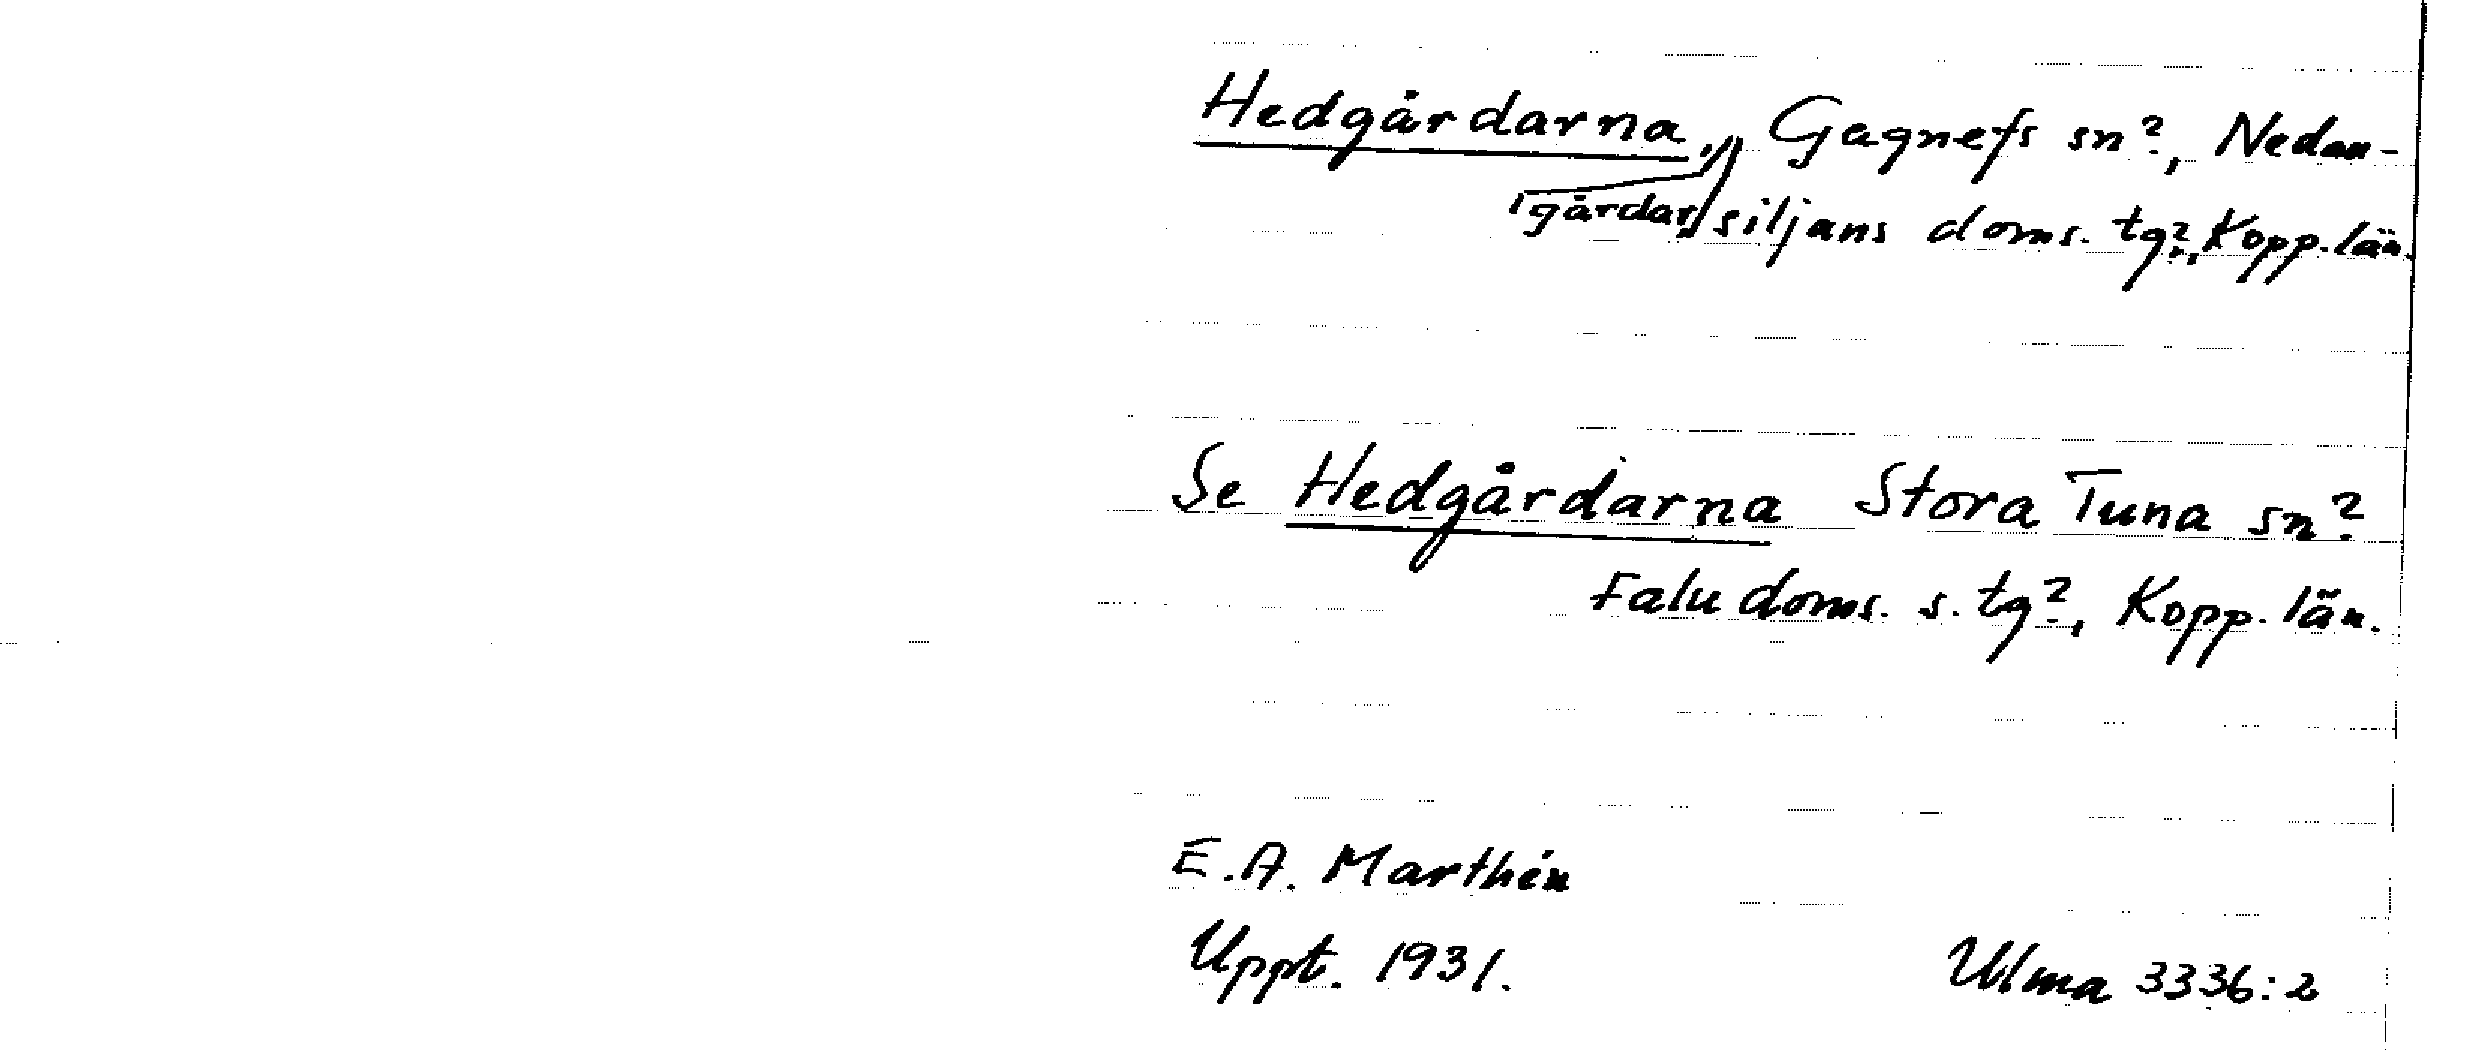 Hedgårdarna, Gagnefs sn?, Nedan-
gårdar, siljans doms. tg?, Kopp. län.
Se Hedgårdarna Stora Tuna sn?
Falu doms. s. tg?, Kopp. län.
E.A. Marthin
Uppt. 1931.
Ulma 3336:2